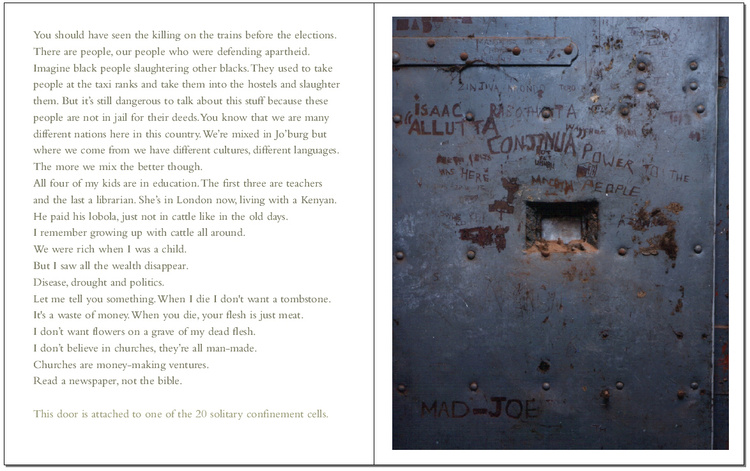 You should have seen the killing on the trains before the elections.
There are people, our people who were defending apartheid.
Imagine black people slaughtering other blacks. They used to take
people at the taxi ranks and take them into the hostels and slaughter
them. But it's still dangerous to talk about this stuff because these
people are not in jail for their deeds. You know that we are many
different nations here in this country. We're mixed in Jo'burg but
where we come from we have different cultures, different languages.
The more we mix the better though.
All four of my kids are in education. The first three are teachers
and the last a librarian. She's in London now, living with a Kenyan.
He paid his lobola, just not in cattle like in the old days.
I remember growing up with cattle all around.
We were rich when I was a child.
But I saw all the wealth disappear.
Disease, drought and politics.
Let me tell you something. When I die I don't want a tombstone.
It's a waste of money. When you die, your flesh is just meat.
I don't want flowers on a grave of my dead flesh.
I don't believe in churches, they're all man-made.
Churches are money-making ventures.
Read a newspaper, not the bible.
This door is attached to one of the 20 solitary confinement cells.
ISAAC
"ALLUTTA CONTINUA POWER TO THE
WAS HERE
PEOPLE
MAD-JOE